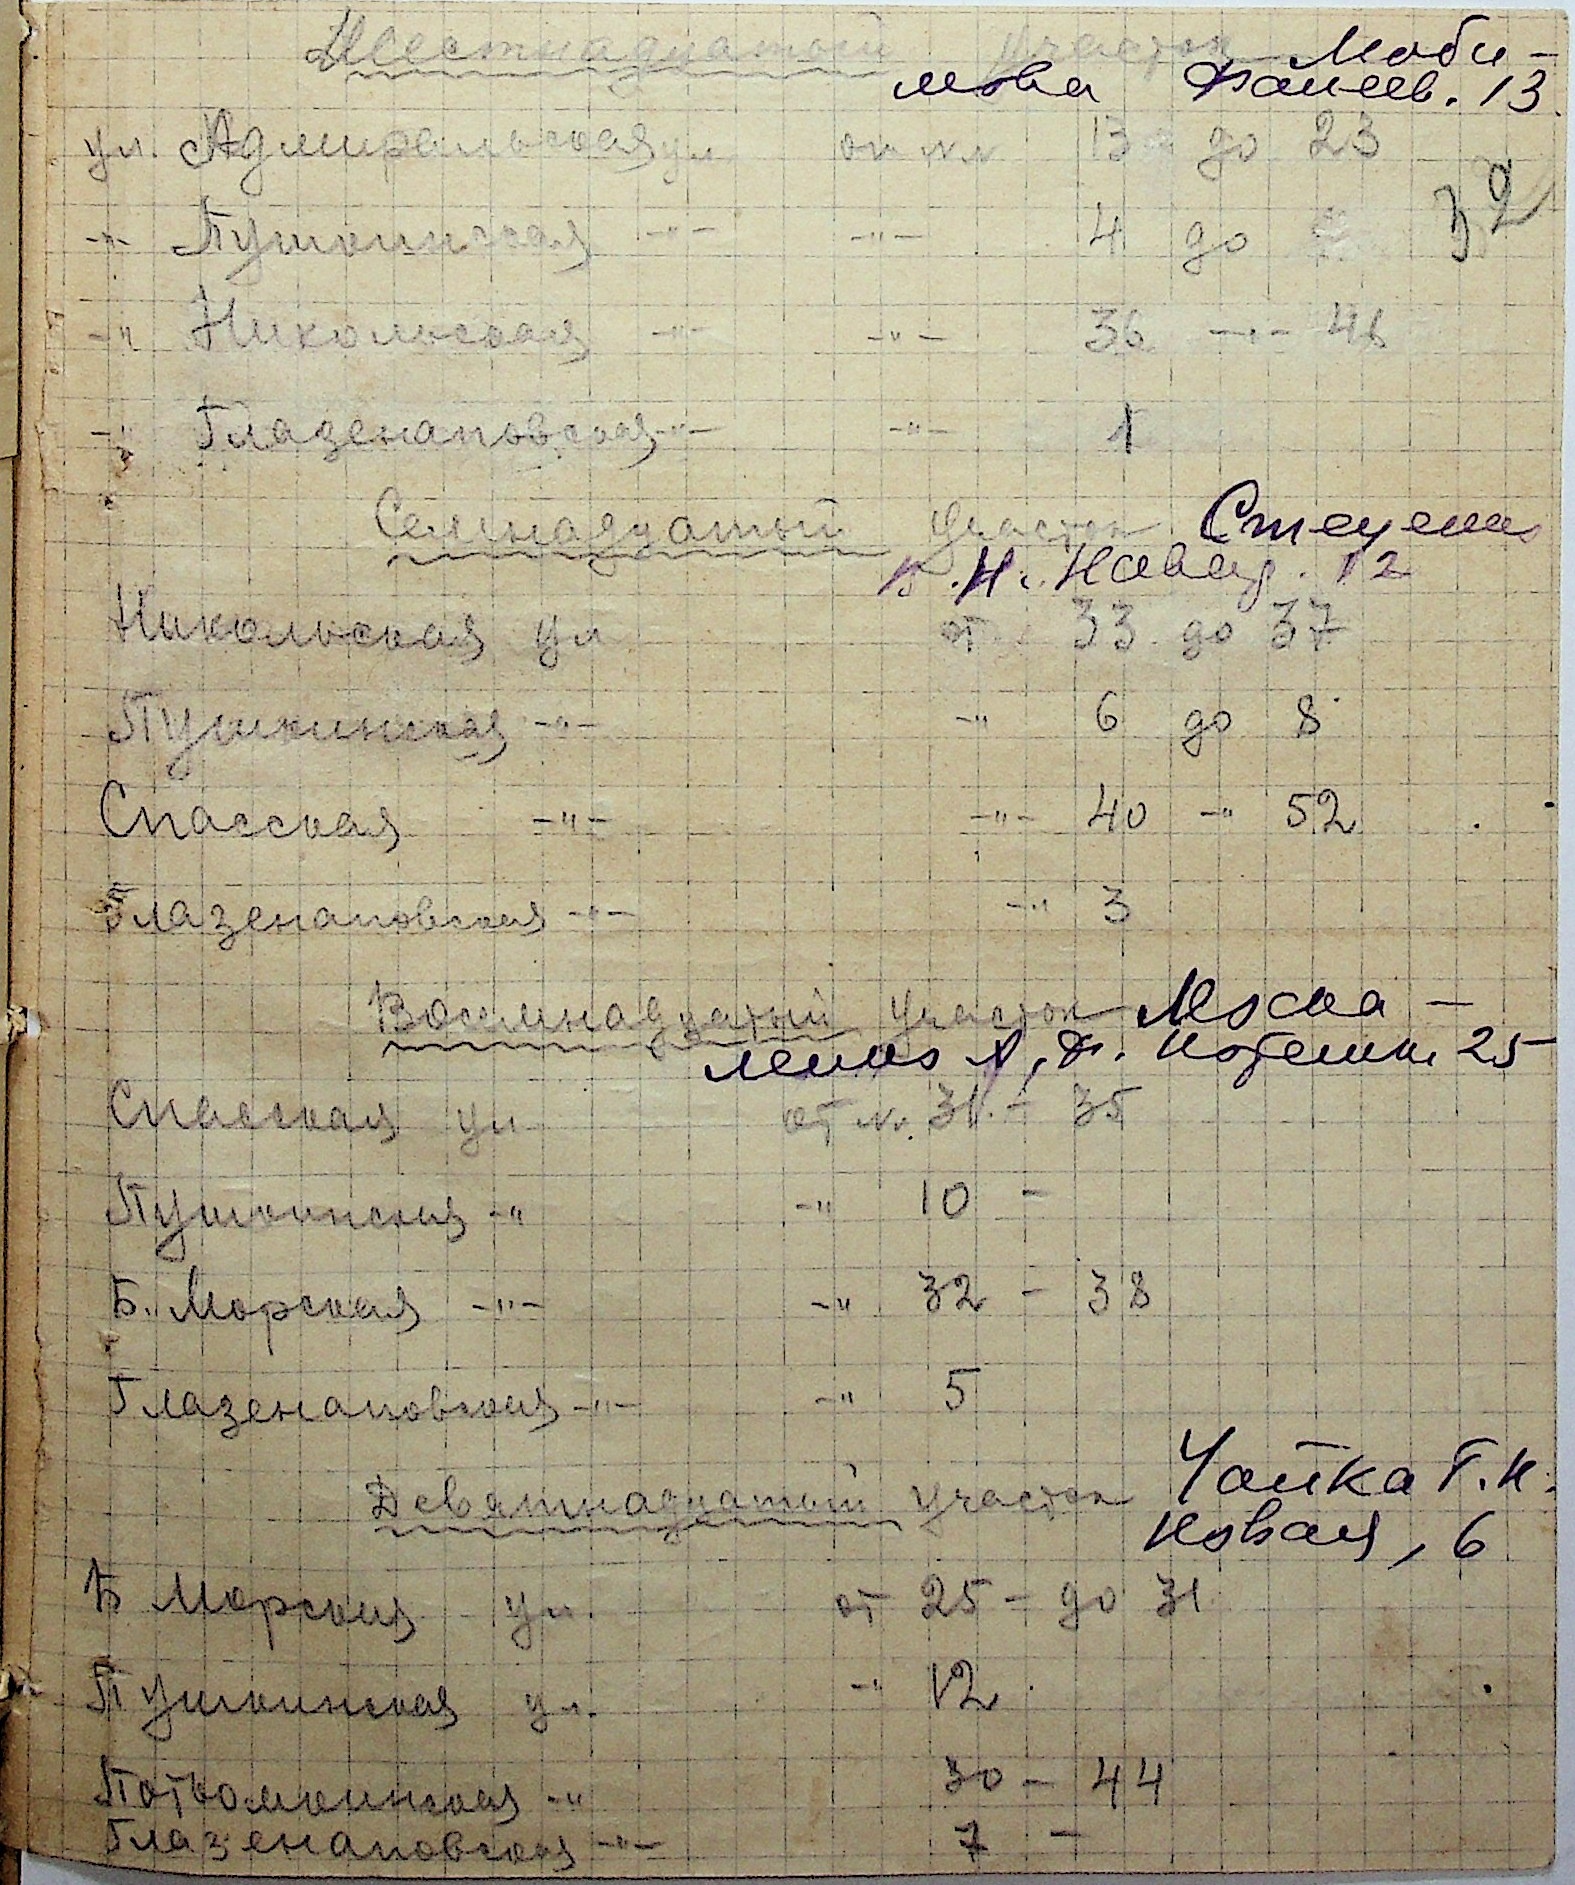 Шестнадцатый участок Моби-
мова Фалеев. 13.
ул. Адмиральская ул от №№ 13 до 23
-"- Пушкинская -"- -"- 4 до 32
-"- Никольская -"- -"- 36 -"- 46
-"- Глазенаповская -"- -"- 1
Семнадцатый участок Стеценко
В. Н. Навар. 12
Никольская ул от 33 до 37
Пушкинская -"- -"- 6 до 8
Спасская -"- -"- 40 -"- 52
Глазенаповская -"- -"- 3
Восемнадцатый участок Моска-
ленко А, Ф. Потемк. 25
Спасская ул от №. 31. - 35
Пушкинская -"- -"- 10 -
Б. Морская -"- -"- 32 - 38
Глазенаповская -"- -"- 5
Девятнадцатый участок Чайка Г. И.
Новая, 6
Б Морская ул. от 25 - до 31
Пушкинская ул. -"- 12
Потьомкинская -"- 30 - 44
Глазенаповская -"- 7 -